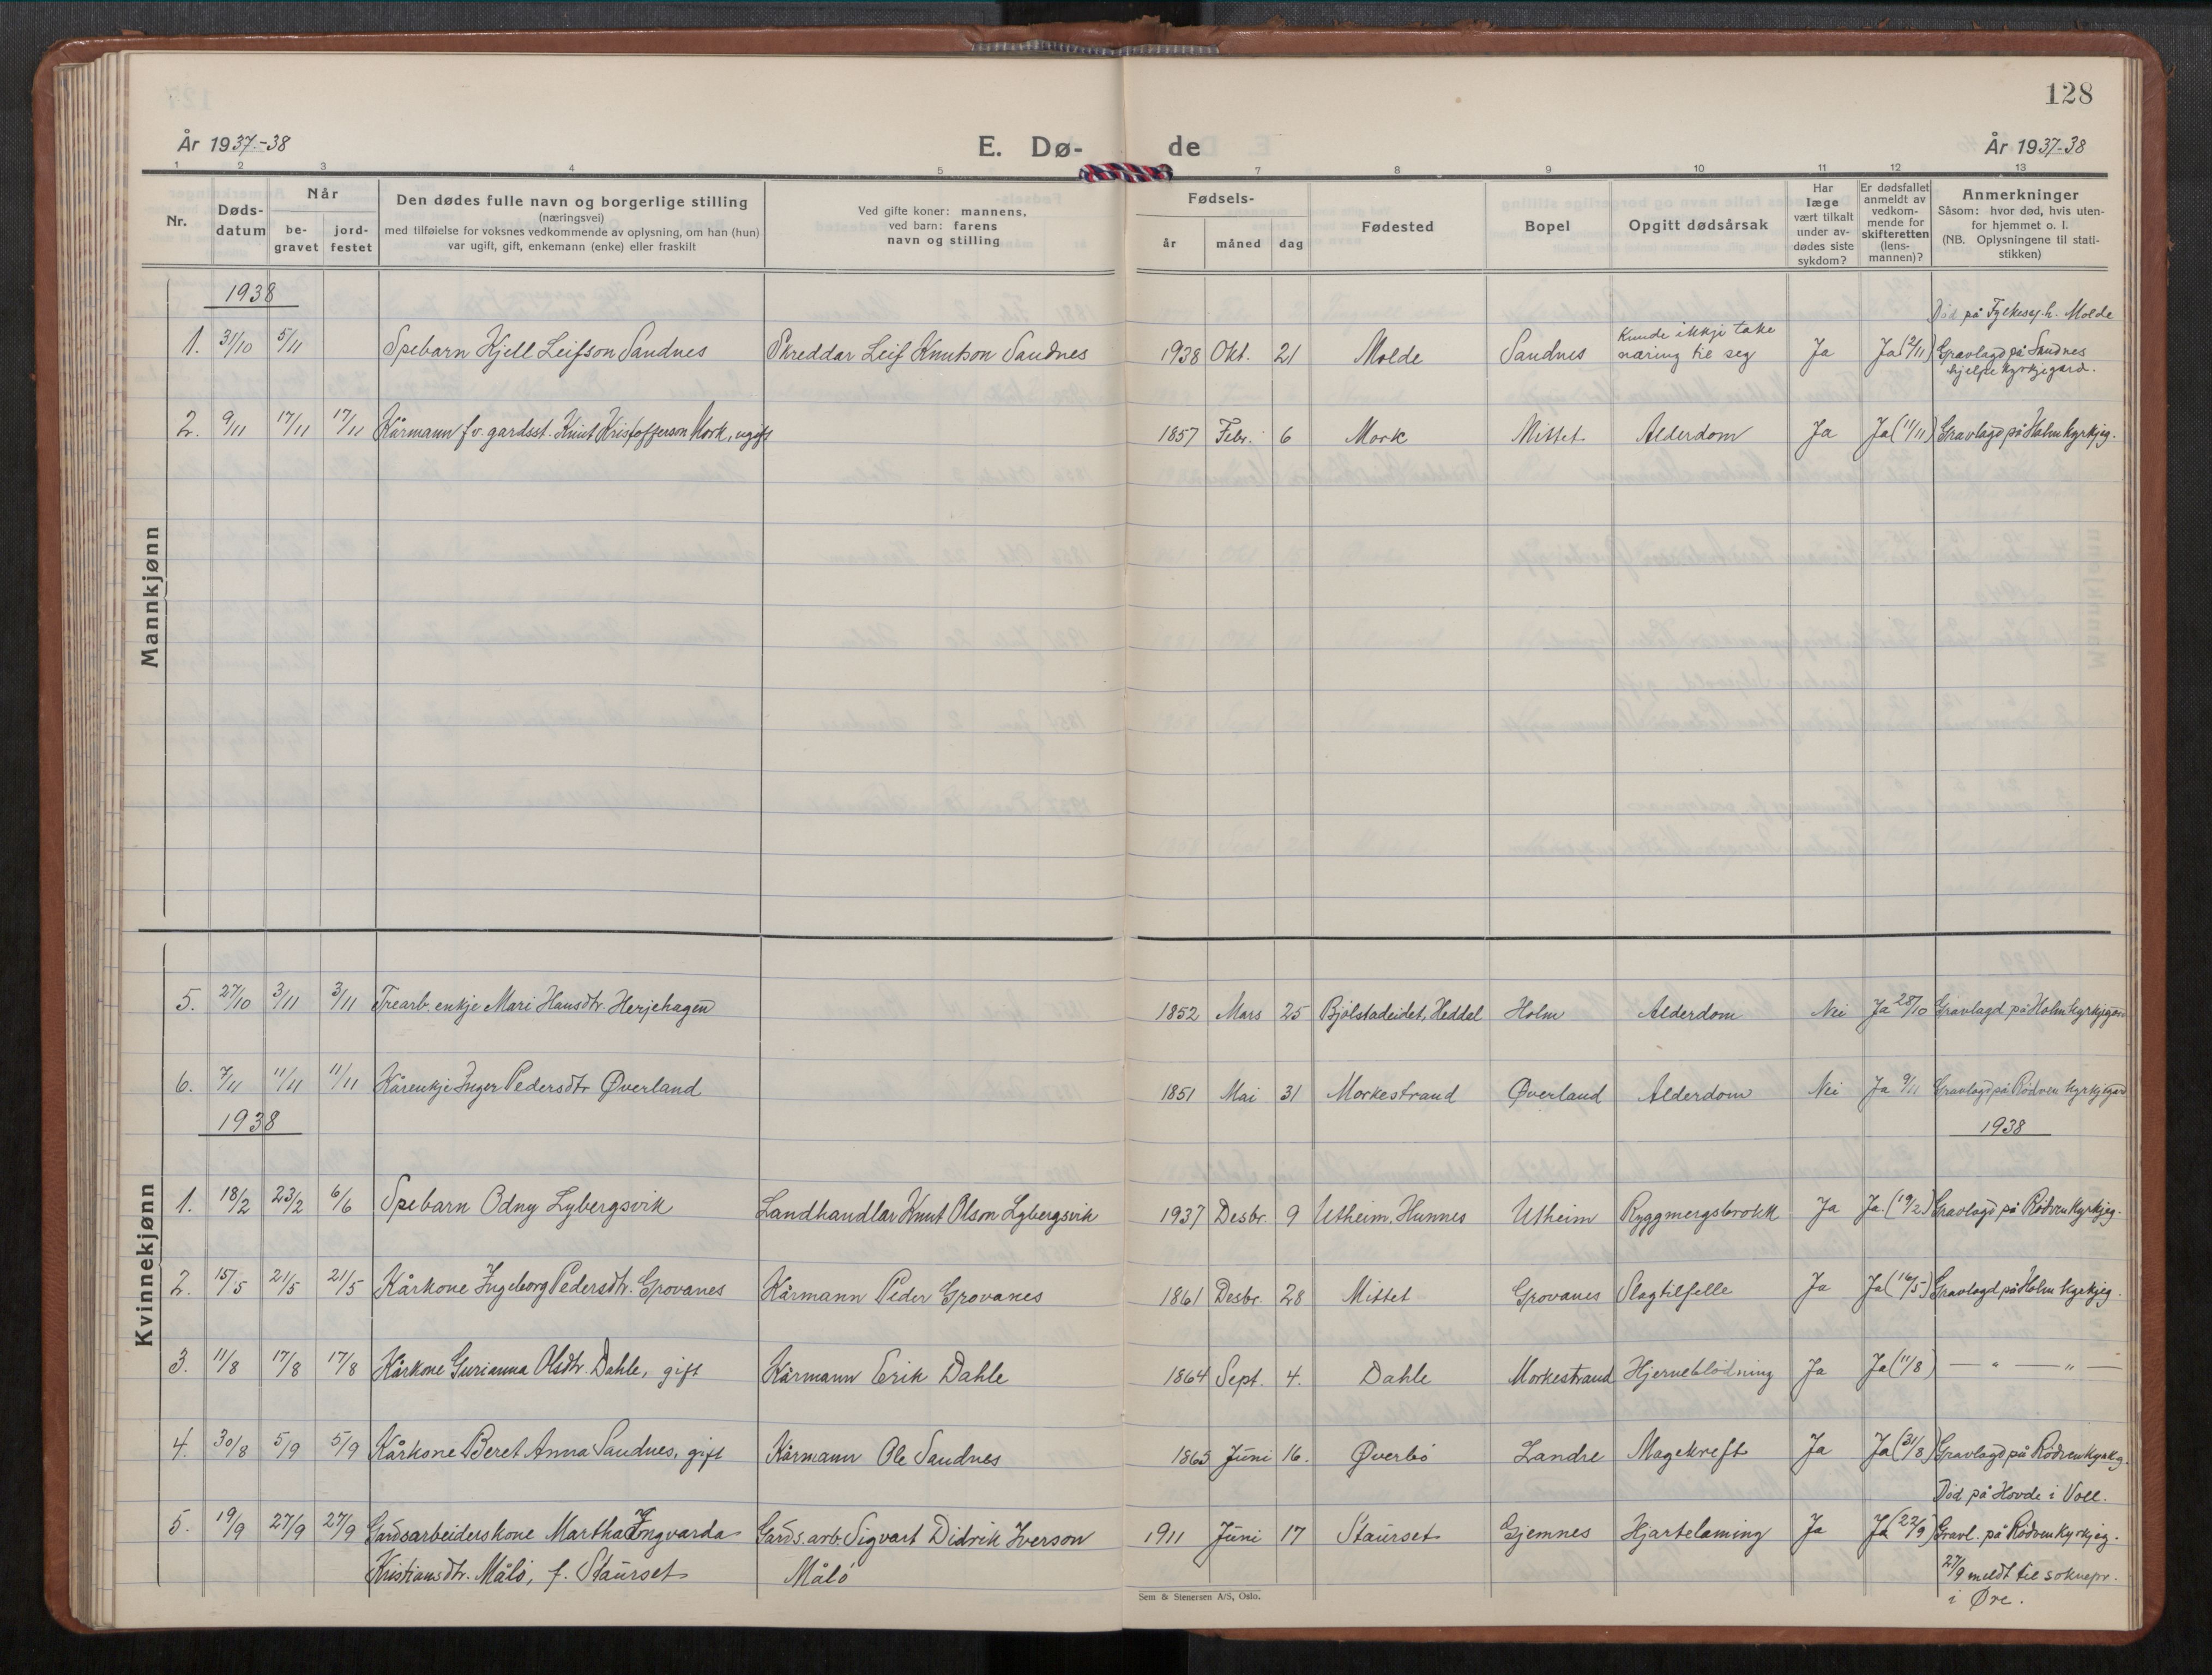 128
År 1937-38
E. Dø-
de
År 1937-38
1 2 3 4 5 7 8 9 10 11 12 13
Nr.
Døds-
datum
Når
be-
gravet
jord-
festet
Den dødes fulle navn og borgerlige stilling
(næringsvei)
med tilføielse for voksnes vedkommende av oplysning, om han (hun)
var ugift, gift, enkemann (enke) eller fraskilt
Ved gifte koner: mannens,
ved barn: farens
navn og stilling
Fødsels-
år
måned
dag
Fødested
Bopel
Opgitt dødsårsak
Har
læge
vært tilkalt
under av-
dødes siste
sykdom?
Er dødsfallet
anmeldt av
vedkom-
mende for
skifteretten
(lens-
mannen)?
Anmerkninger
Såsom: hvor død, hvis uten-
for hjemmet o. l.
(NB. Oplysningene til stati-
stikken)
Mannkjønn
1938
Død på Fylkessj.h. Molde
Kunde ikkje take
1. 31/10 5/11 Spebarn Kjell Leifson Sandnes Skreddar Leif Knutson Sandnes 1938 Okt. 21 Molde Sandnes næring til seg Ja Ja (2/11) Gravlagd på Sandnes
hjelpekyrkjegard.
2. 9/11 17/11 17/11 Kårmann fv. gardsst. Knut Kristofferson Mork, ugift 1857 Febr. 6 Mork Mittet Alderdom Ja Ja (11/11) Gravlagd på Holm kyrkjeg.
Kvinnekjønn
5. 27/10 3/11 3/11 Trearb. enkje Mari Hansdtr. Herjehagen 1852 Mars 25 Bjølstadeidet, Heddal Holm Alderdom Nei Ja 28/10 Gravlagd på Holm kyrkjegard
6. 7/11 11/11 11/11 Kårenkje Inger Pedersdtr Øverland 1851 Mai 31 Morkestrand Øverland Alderdom Nei Ja 9/11 Gravlagd på Rødven kyrkjegard
1938
1938
1. 18/2 23/2 6/6 Spebarn Odny Lybergsvik Landhandlar Knut Olson Lybergsvik 1937 Desbr. 9 Utheim, Hunnes Utheim Ryggmergsbrokk Ja Ja. (19/2) Gravlagd på Rødven kyrkjeg.
2. 15/5 21/5 21/5 Kårkone Ingeborg Pedersdtr. Grovanes Kårmann Peder Grovanes 1861 Desbr. 28 Mittet Grovanes Slagtilfelle Ja Ja (16/5) Gravlagd på Holm kyrkjeg.
3. 11/8 17/8 17/8 Kårkone Gurianna Olsdtr. Dahle, gift Kårmann Erik Dahle 1864 Sept. 4. Dahle Morkestrand Hjerneblødning Ja Ja (11/8) — " — " —
4. 30/8 5/9 5/9 Kårkone Beret Anna Sandnes, gift Kårmann Ole Sandnes 1863 Juni 16. Øverbø Landre Magekreft Ja Ja (31/8) Gravlagd på Rødven kyrkjg.
Død på Hovde i Voll.
5. 19/9 27/9 27/9 Gardsarbeiderskone Martha Ingvarda Gards.arb. Sigvart Didrik Iverson 1911 Juni 17 Staurset Gjemnes Hjartelaming Ja Ja (22/9) Gravl. på Rødven kyrkjeg.
Kristiansdtr. Målø, f. Staurset Målø 27/9 meldt til soknepr.
i Øre.
Sem & Stenersen A/S, Oslo.